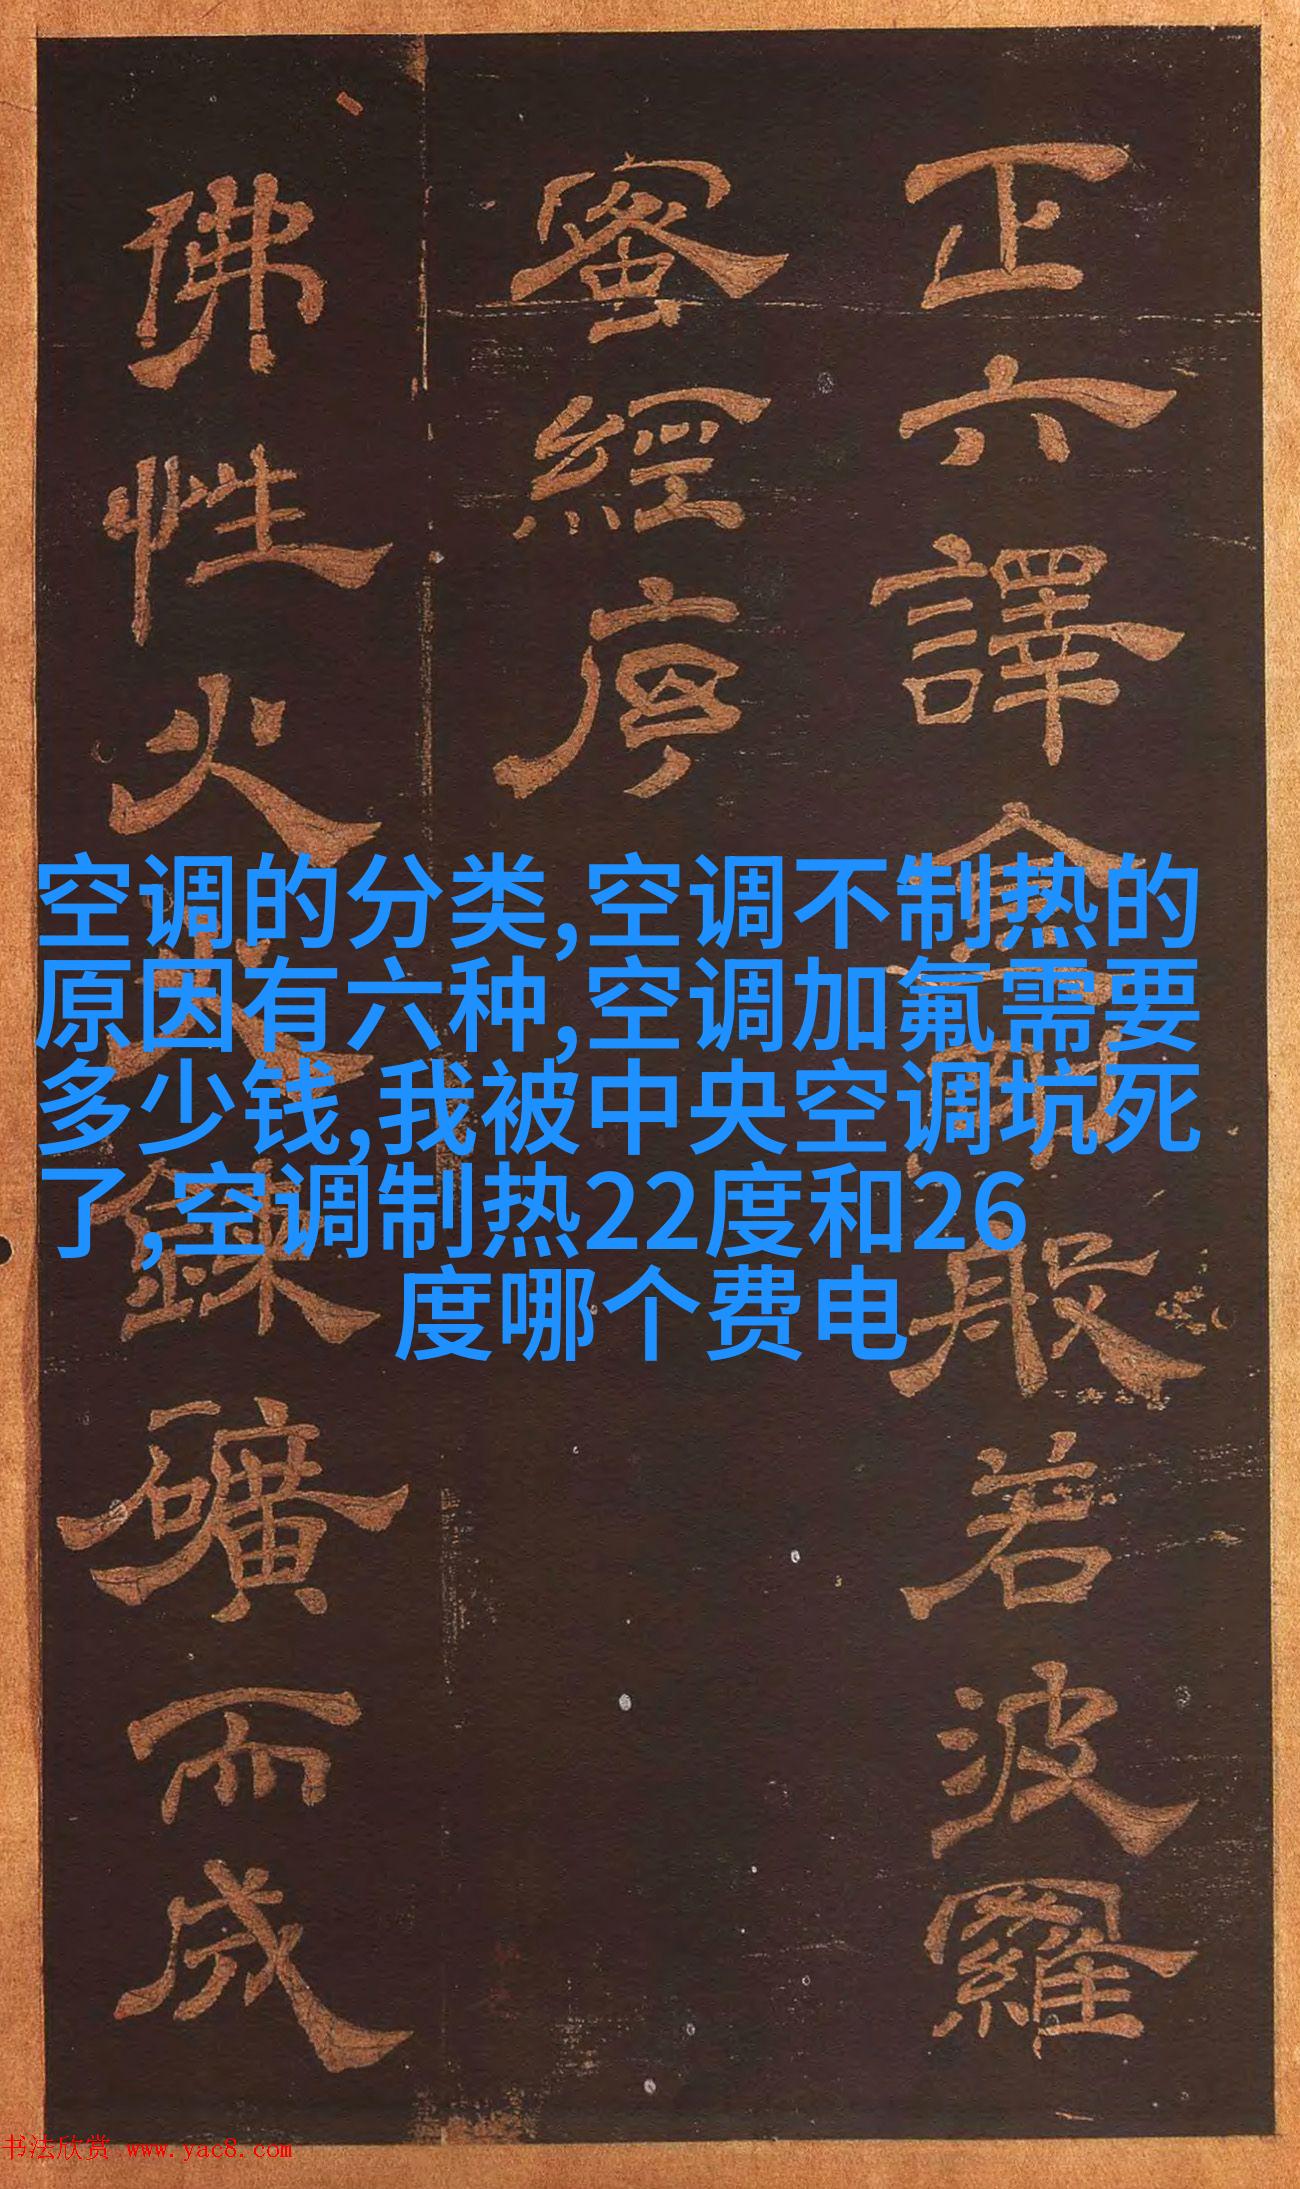 正六譯金剛般若波羅
蜜經序
佛性火此鍊礦而成
空调的分类,空调不制热的
原因有六种,空调加氟需要
多少钱,我被中央空调坑死
了,空调制热22度和26
度哪个费电
书法欣赏 www.yac8.com